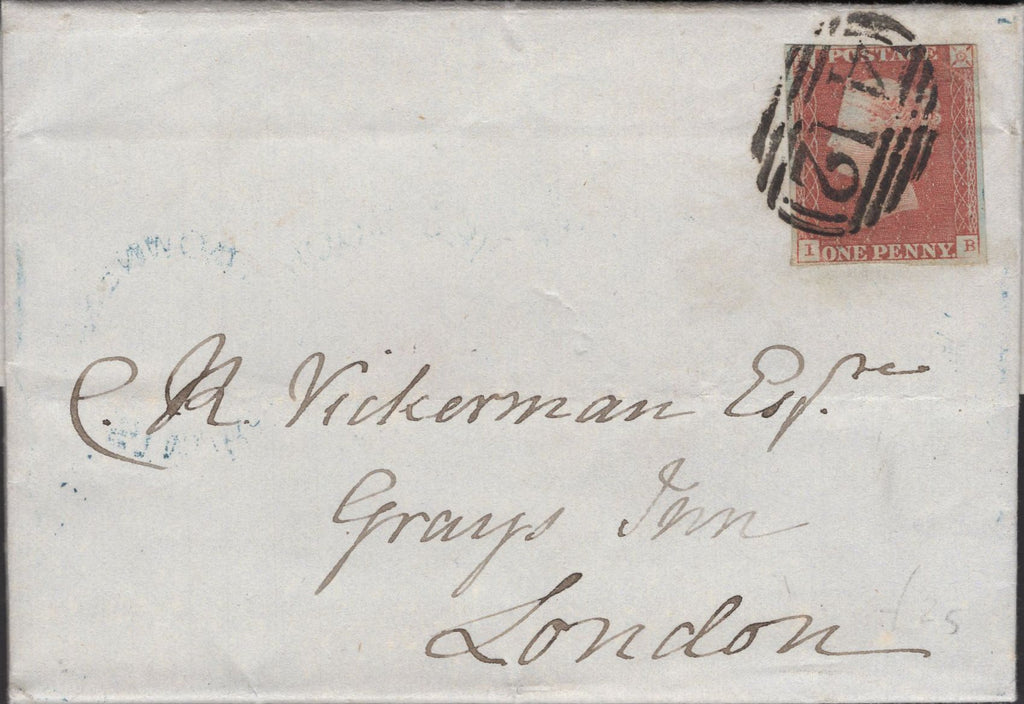 POSTAGE
I ONE PENNY. B
C. R. Vickerman Esqre
Grays Inn
London